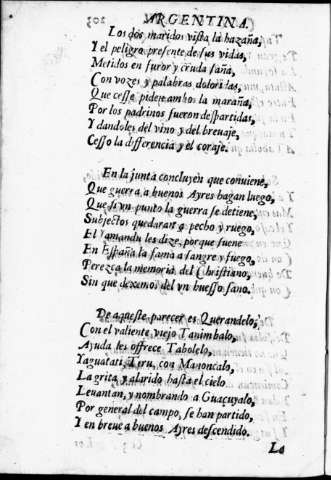 ARGENTINA.
Los dos maridos vista la hazaña,
Y el peligro presente de sus vidas,
Metidos en furor y cruda saña,
Con vozes y palabras doloridas,
Que cesse piden ambos la maraña,
Por los padrinos fueron despartidas,
Y dandoles del vino y del brevaje,
Cesso la differencia y el coraje.
En la junta concluyen que conviene,
Que guerra a buenos Ayres hagan luego,
Que si un punto la guerra se detiene,
Subjectos quedaran a pecho y ruego,
El Yamandu les dize, porque suene
En España la fama a sangre y fuego,
Perezca la memoria del Christiano,
Sin que dexemos del vn huesso sano.
De aqueste parecer es Querandelo,
Con el valiente viejo Tanimbalo,
Ayuda les offrece Tabolelo,
Yaguatati, Teru, con Manoncalo,
La grita y alarido hasta el cielo
Leuantan, y nombrando a Guaçuyalo,
Por general del campo, se han partido,
Y en breue a buenos Ayres descendido.
La